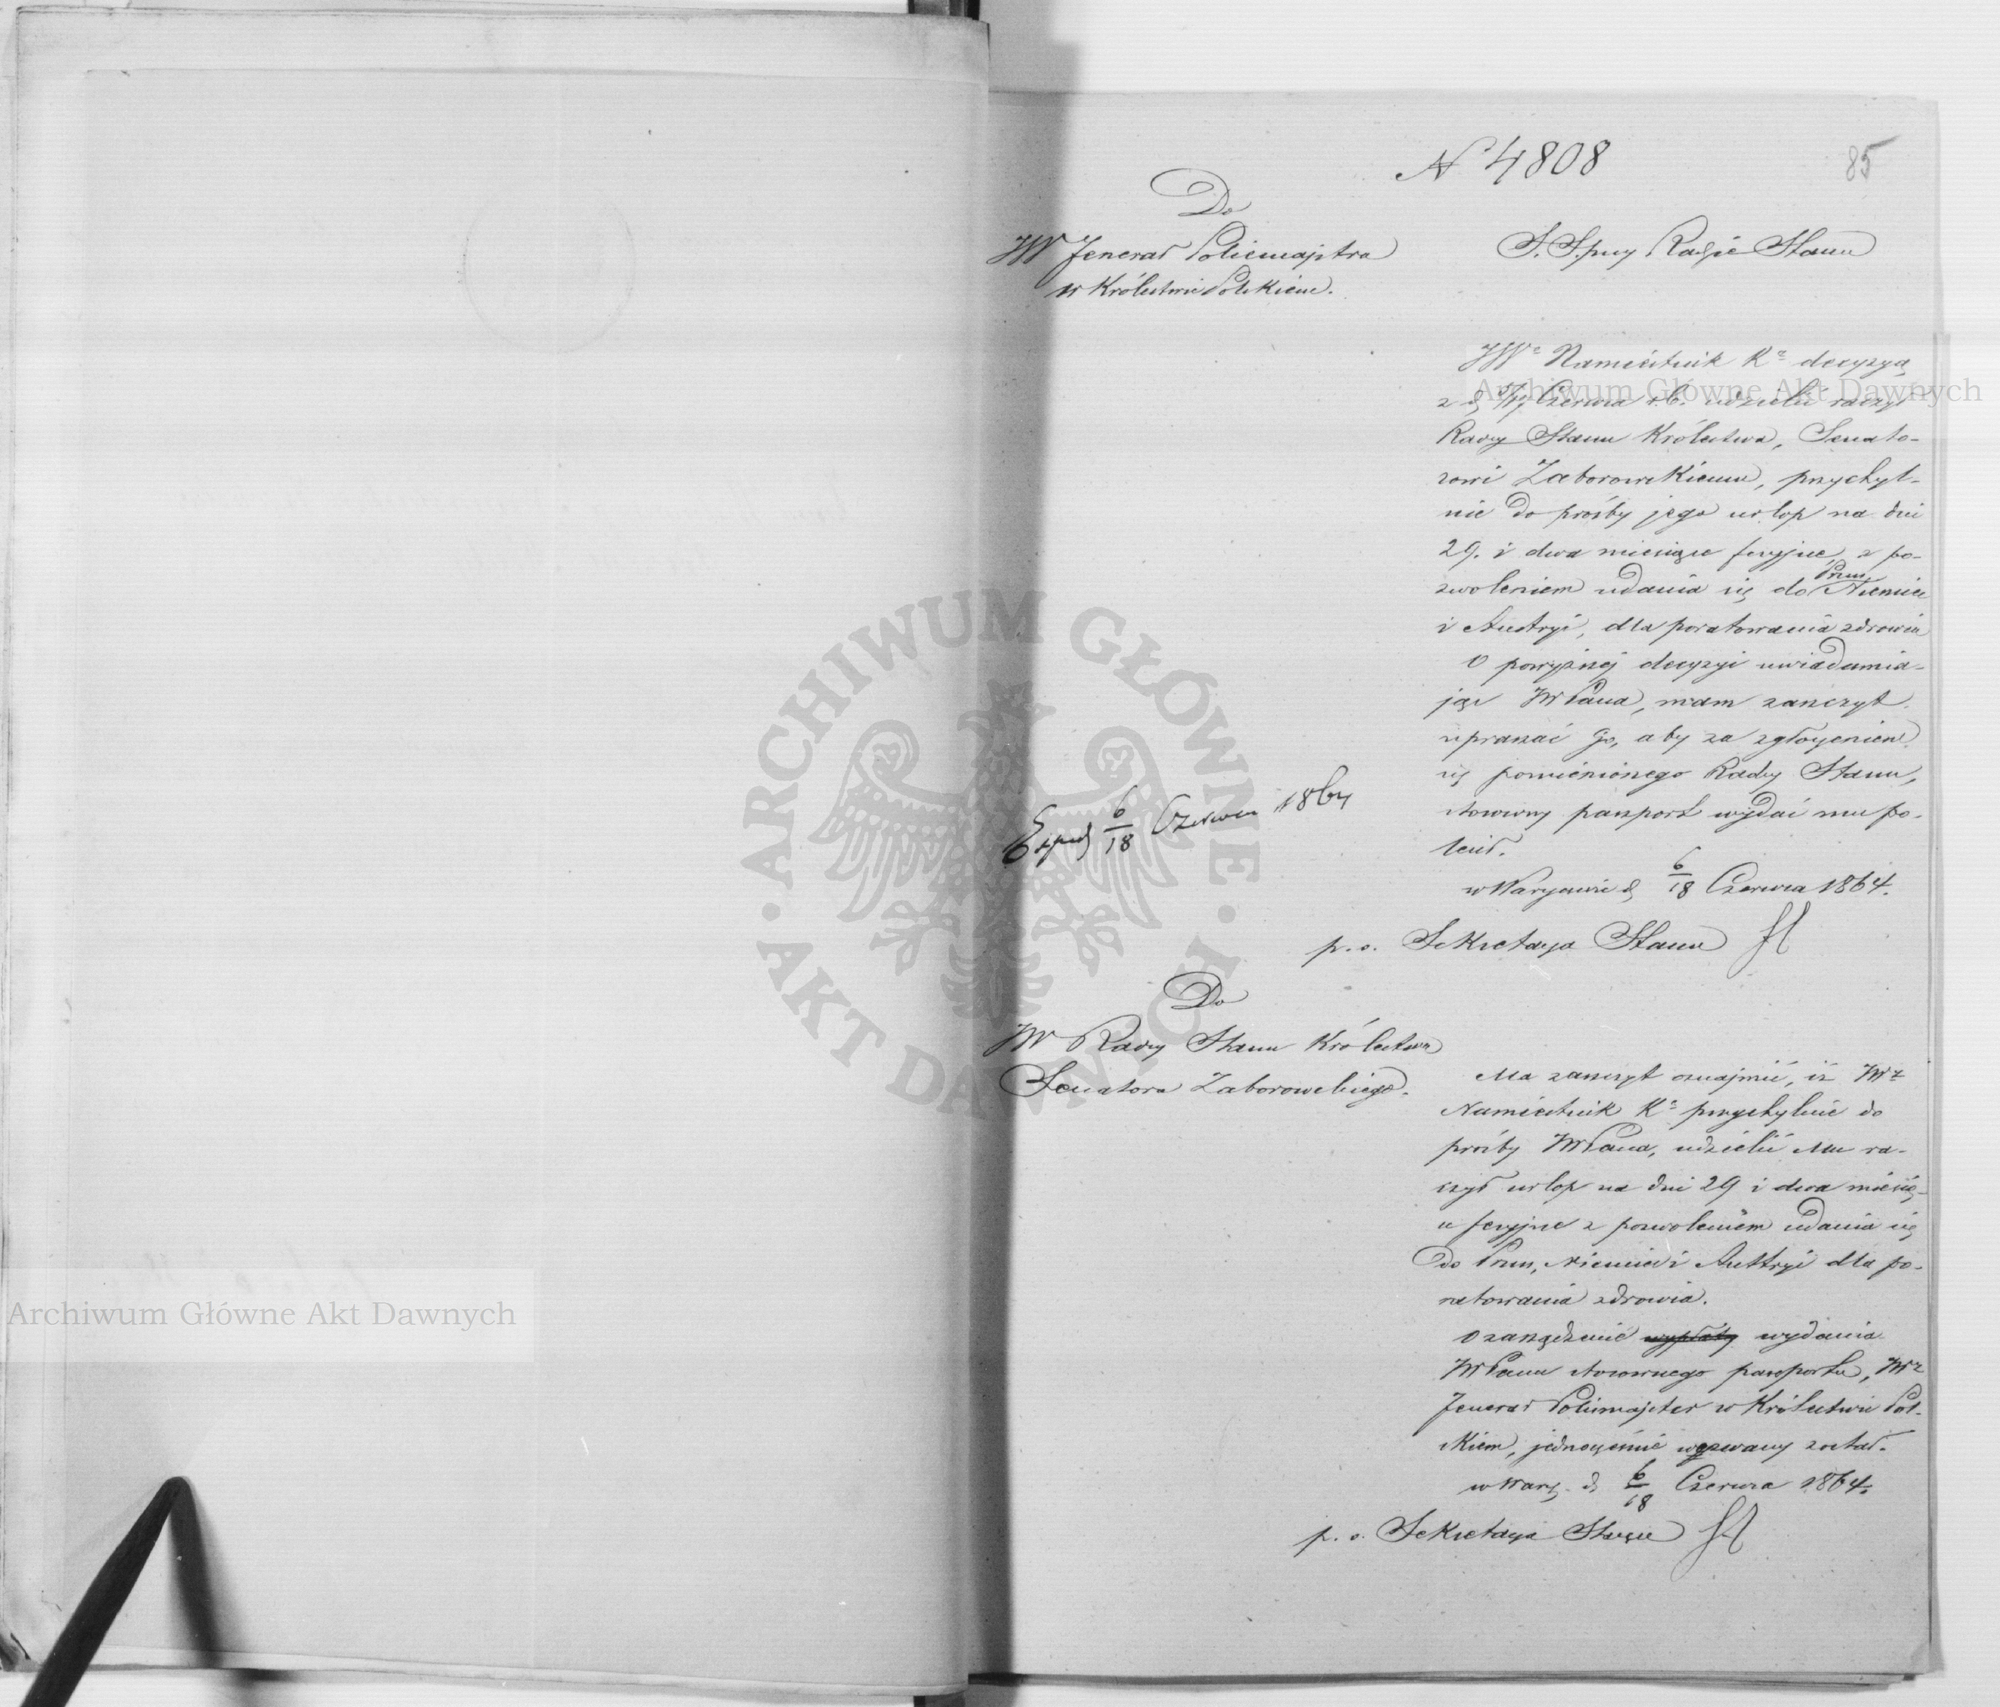 N 4808
85
Do
JW Jenerał Policmajstra
w Królestwie Polskiem.
S. S. przy Radzie Stanu
JW Namiestnik K decyzyą
Czerwca r. b. udzielić raczył
Radcy Stanu Królestwa, Senato-
rowi Zaborowskiemu, przychyl-
nie do prośby jego urlop na dni
29. i dwa miesiące feryjne, z po-
zwoleniem udania się do Prus, Niemiec
i Austryi, dla poratowania zdrowia
O powyższej decyzyi uwiadamia-
jąc JWPana, mam zaszczyt
upraszać Go, aby za zgłoszeniem
się pomienionego Radcy Stanu,
stosowny paszport wydać mu po-
lecił.
w Warszawie d 6/18 Czerwca 1864.
p. o. Sekretarza Stanu
Exped 6/18 Czerwca 1864
Do
JW Radcy Stanu Królestwa
Senatora Zaborowskiego.
Ma zaszczyt oznajmić, iż JW
Namiestnik K przychylnie do
prośby JWPana, udzielić Mu ra-
czył urlop na dni 29 i dwa miesią-
ce feryjne z pozwoleniem udania się
do Prus, Niemiec i Austryi dla po-
ratowania zdrowia.
O zarządzenie wypłaty wydania
JWPanu stosownego paszportu, JW
Jenerał Policmajster w Królestwie Pol-
skiem, jednocześnie wezwany został.
w Warsz. d 6/18 Czerwca 1864.
p. o. Sekretarza Stanu
Archiwum Główne Akt Dawnych
Archiwum Główne Akt Dawnych
ARCHIWUM GŁÓWNE AKT DAWNYCH